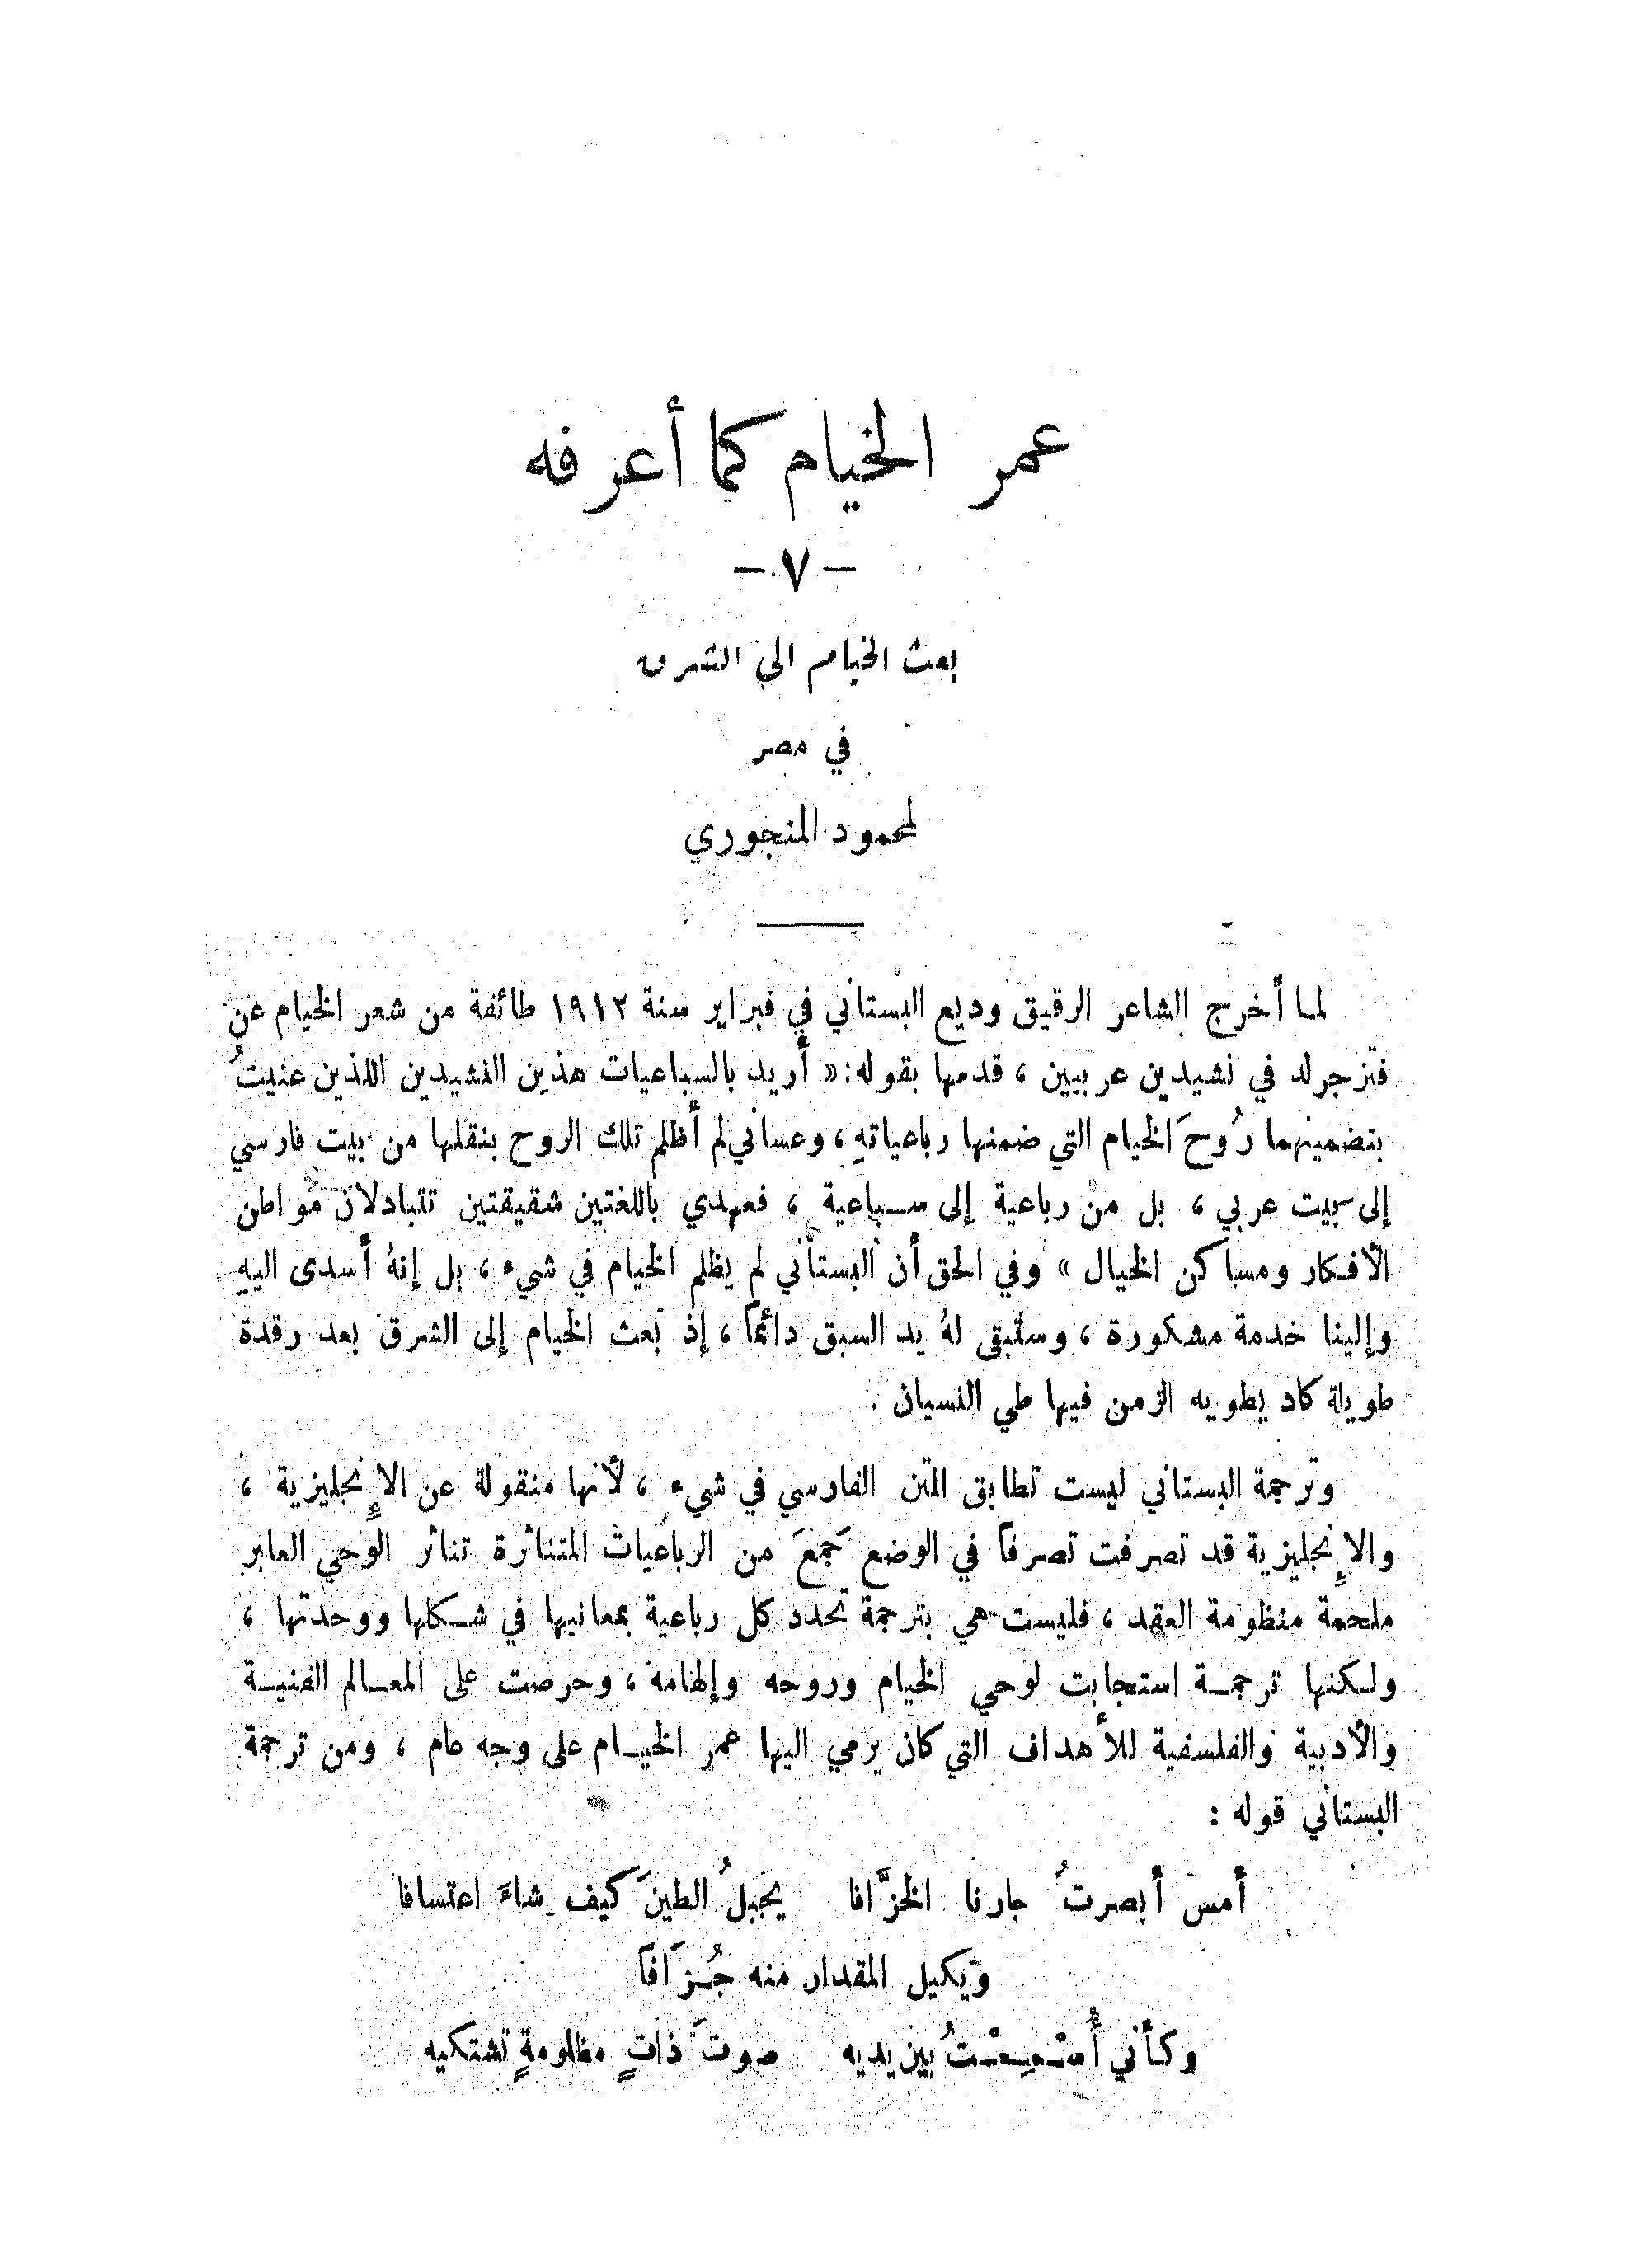 عمر الخيام كما أعرفه
- ٧ -
بعث الخيام الى الشرق
في مصر
لمحمود المنجوري
لما أخرج الشاعر الرقيق وديع البستاني في فبراير سنة ١٩١٢ طائفة من شعر الخيام عن
فتزجرلد في نشيدين عربيين ، قدمها بقوله : « أريد بالسباعيات هذين النشيدين اللذين عنيتُ
بتضمينهما رُوحَ الخيام التي ضمنها رباعياتهِ ، وعساني لم أظلم تلك الروح بنقلها من بيت فارسي
إلى بيت عربي ، بل من رباعية إلى سباعية ، فعهدي باللغتين شقيقتين تتبادلان مواطن
الأفكار ومساكن الخيال » وفي الحق أن البستاني لم يظلم الخيام في شيء ، بل إنهُ أسدى اليهِ
وإلينا خدمة مشكورة ، وستبقى لهُ يد السبق دائماً ، إذ بعث الخيام إلى الشرق بعد رقدة
طويلة كاد يطويه الزمن فيها طي النسيان .
وترجمة البستاني ليست تطابق المتن الفارسي في شيء ، لأنها منقولة عن الإنجليزية ،
والإنجليزية قد تصرفت تصرفاً في الوضع جمعَ من الرباعيات المتناثرة تناثر الوحي العابر
ملحمة منظومة العقد ، فليست هي بترجمة تحدد كل رباعية بمعانيها في شكلها ووحدتها ،
ولكنها ترجمة استجابت لوحي الخيام وروحه وإلهامه ، وحرصت على المعالم الفنية
والأدبية والفلسفية للأهداف التي كان يرمي اليها عمر الخيام على وجه عام ، ومن ترجمة
البستاني قوله :
أمس أبصرتُ جارنا الخزَّافا يجبلُ الطينَ كيف شاءَ اعتسافا
ويكيل المقدار منه جُزَافاً
وكأني أُسْمِعْتُ بين يديه صوتَ ذاتٍ مظلومةٍ تشتكيه